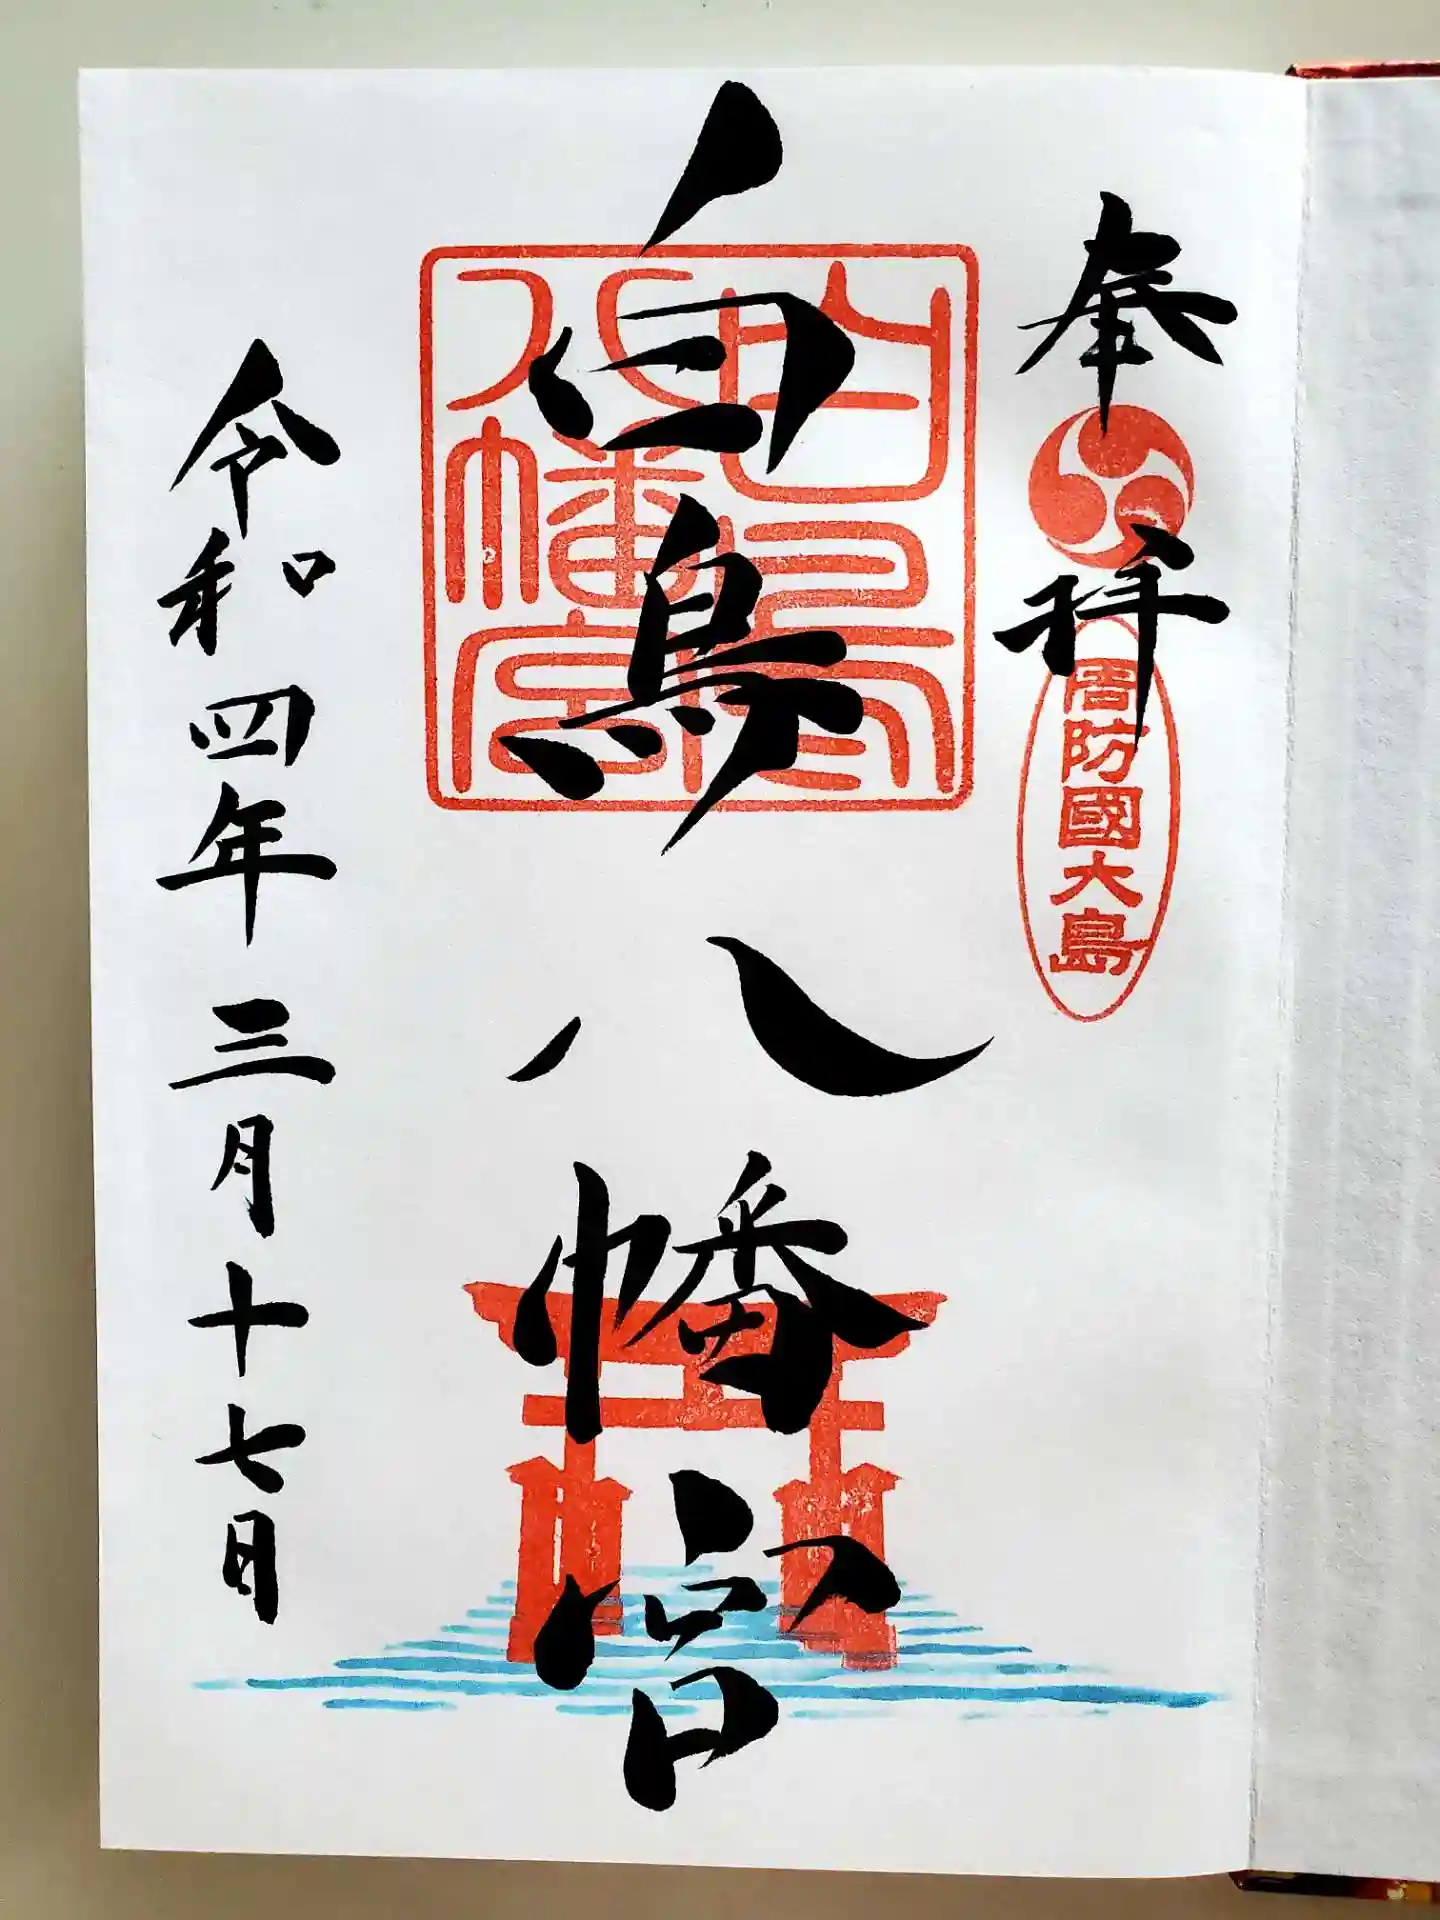 奉拝
周防國大島
白鳥八幡宮
白鳥
八幡宮
令和四年三月十七日